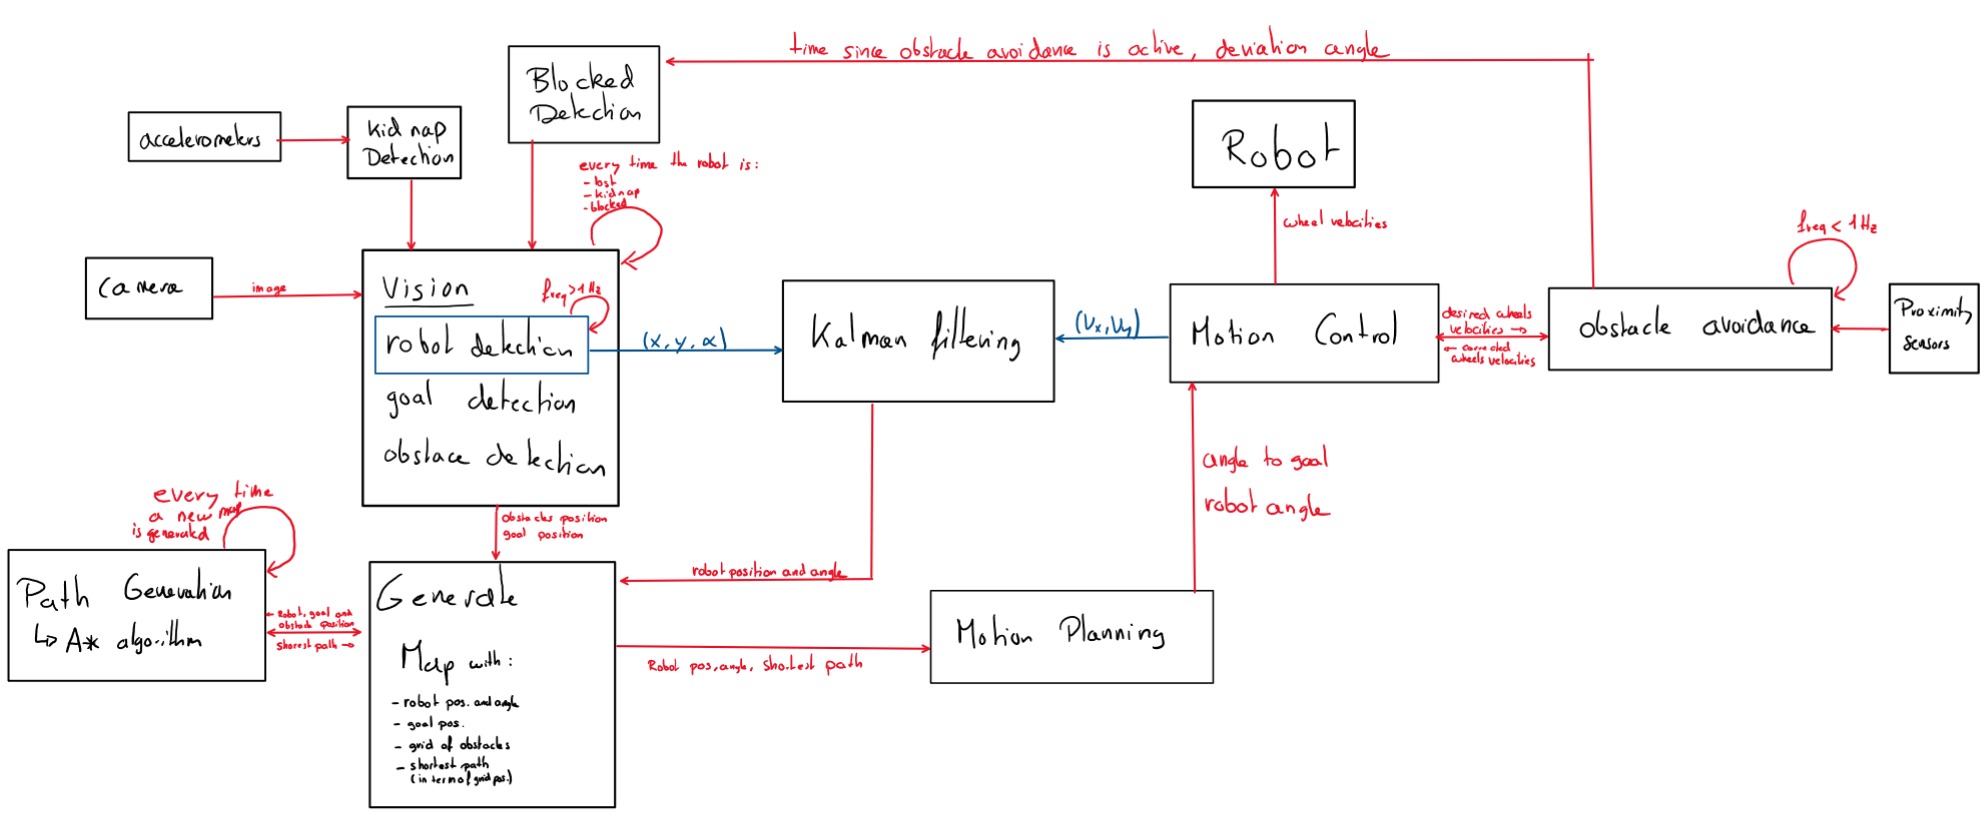 time since obstacle avoidance is active, deviation angle
Blocked
Detection
accelerometers
kidnap
Detection
every time the robot is:
- lost
- kidnap
- blocked
Robot
wheel velocities
freq < 1Hz
Camera
image
Vision
freq > 1Hz
robot detection
goal detection
obstace detection
(x, y, α)
Kalman filtering
(Vx, Vy)
Motion Control
desired wheels
velocities →
← corrected
wheels velocities
obstacle avoidance
Proximity
sensors
angle to goal
robot angle
every time
a new map
is generated
obstacles position
goal position
Path Generation
↳ A* algorithm
← Robot, goal and
obstacle position
Shorest path →
Generate
Map with:
- robot pos. and angle
- goal pos.
- grid of obstacles
- shortest path
(in term of grid pos.)
robot position and angle
Robot pos, angle, shortest path
Motion Planning